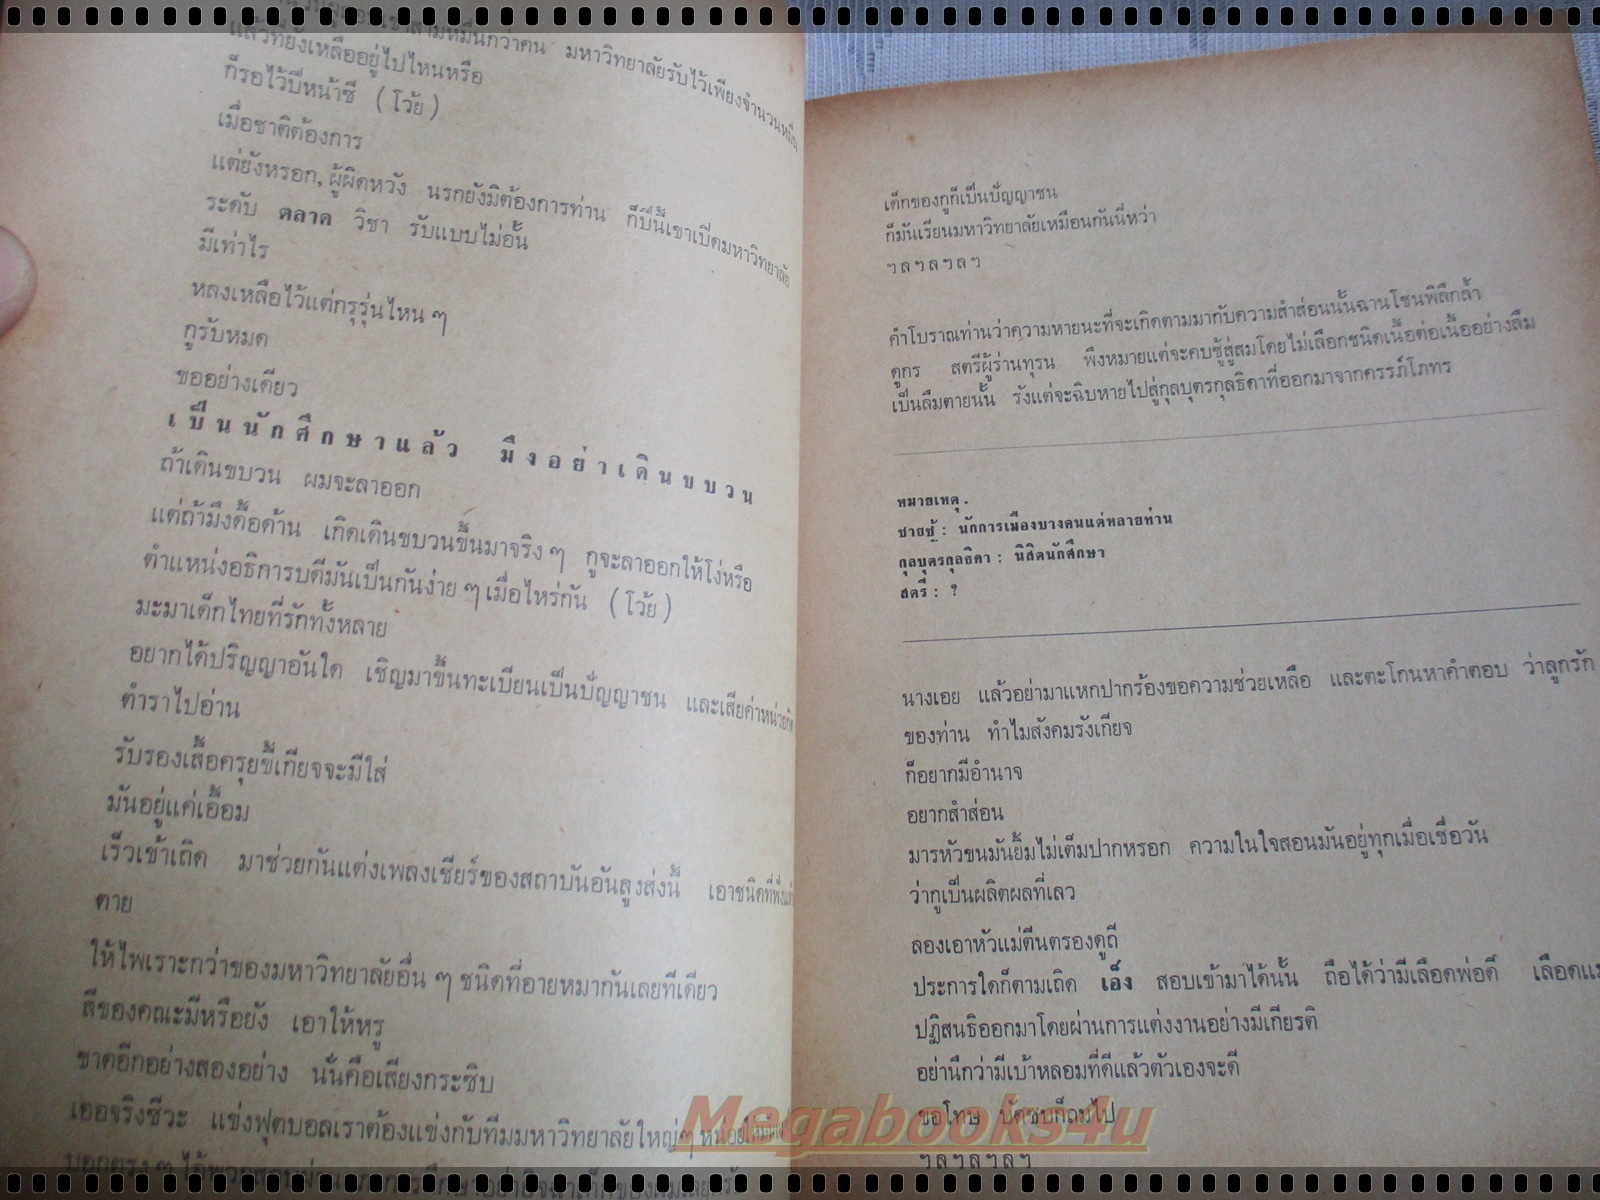 เขาสามหมื่นกว่าคน มหาวิทยาลัยรับไว้เพียงจำนวนหมื่น
แล้วที่ยังเหลืออยู่ไปไหนหรือ
ก็รอไว้ปีหน้าซี (โว้ย)
เมื่อชาติต้องการ
แต่ยังหรอก, ผู้ผิดหวัง นรกยังมิต้องการท่าน ก็ปีนี้เขาเปิดมหาวิทยาลัย
ระดับ ตลาด วิชา รับแบบไม่อั้น
มีเท่าไร
หลงเหลือไว้แต่กรุรุ่นไหน ๆ
กูรับหมด
ขออย่างเดียว
เป็นนักศึกษาแล้ว มึงอย่าเดินขบวน
ถ้าเดินขบวน ผมจะลาออก
แต่ถ้ามึงดื้อด้าน เกิดเดินขบวนขึ้นมาจริง ๆ กูจะลาออกให้โง่หรือ
ตำแหน่งอธิการบดีมันเป็นกันง่าย ๆ เมื่อไหร่กัน (โว้ย)
มะมาเด็กไทยที่รักทั้งหลาย
อยากได้ปริญญาอันใด เชิญมาขึ้นทะเบียนเป็นปัญญาชน และเสียค่าหน่วยกิต
ตำราไปอ่าน
รับรองเสื้อครุยขี้เกียจจะมีใส่
มันอยู่แค่เอื้อม
เร็วเข้าเถิด มาช่วยกันแต่งเพลงเชียร์ของสถาบันอันสูงส่งนี้ เอาชนิดที่ฟังแล้ว
ตาย
ให้ไพเราะกว่าของมหาวิทยาลัยอื่น ๆ ชนิดที่อายหมากันเลยทีเดียว
สีของคณะมีหรือยัง เอาให้หรู
ขาดอีกอย่างสองอย่าง นั่นคือเสียงกระซิบ
เออจริงซีวะ แข่งฟุตบอลเราต้องแข่งกับทีมมหาวิทยาลัยใหญ่ๆ
เด็กของกูก็เป็นปัญญาชน
ก็มันเรียนมหาวิทยาลัยเหมือนกันนี่หว่า
ฯลฯลฯลฯ
คำโบราณท่านว่าความหายนะที่จะเกิดตามมากับความสำส่อนนั้นฉานโชนพิลึกล้ำ
ดูกร สตรีผู้ร่านทุรน พึงหมายแต่จะคบชู้สู่สมโดยไม่เลือกชนิดเนื้อต่อเนื้ออย่างลืม
เป็นลืมตายนั้น รังแต่จะฉิบหายไปสู่กุลบุตรกุลธิดาที่ออกมาจากครรภ์โภทร
หมายเหตุ.
ชายชู้ : นักการเมืองบางคนแต่หลายท่าน
กุลบุตรกุลธิดา : นิสิตนักศึกษา
สตรี : ?
นางเอย แล้วอย่ามาแหกปากร้องขอความช่วยเหลือ และตะโกนหาคำตอบ ว่าลูกรัก
ของท่าน ทำไมสังคมรังเกียจ
ก็อยากมีอำนาจ
อยากสำส่อน
มารหัวขนมันยิ้มไม่เต็มปากหรอก ความในใจสอนมันอยู่ทุกเมื่อเชื่อวัน
ว่ากูเป็นผลิตผลที่เลว
ลองเอาหัวแม่ตีนตรองดูถี
ประการใดก็ตามเถิด เอ็ง สอบเข้ามาได้นั้น ถือได้ว่ามีเลือดพ่อดี เลือดแม่
ปฏิสนธิออกมาโดยผ่านการแต่งงานอย่างมีเกียรติ
อย่านึกว่ามีเบ้าหลอมที่ดีแล้วตัวเองจะดี
ขอโทษ บัดซบก็ถมไป
ฯลฯลฯลฯ
Megabooks4u